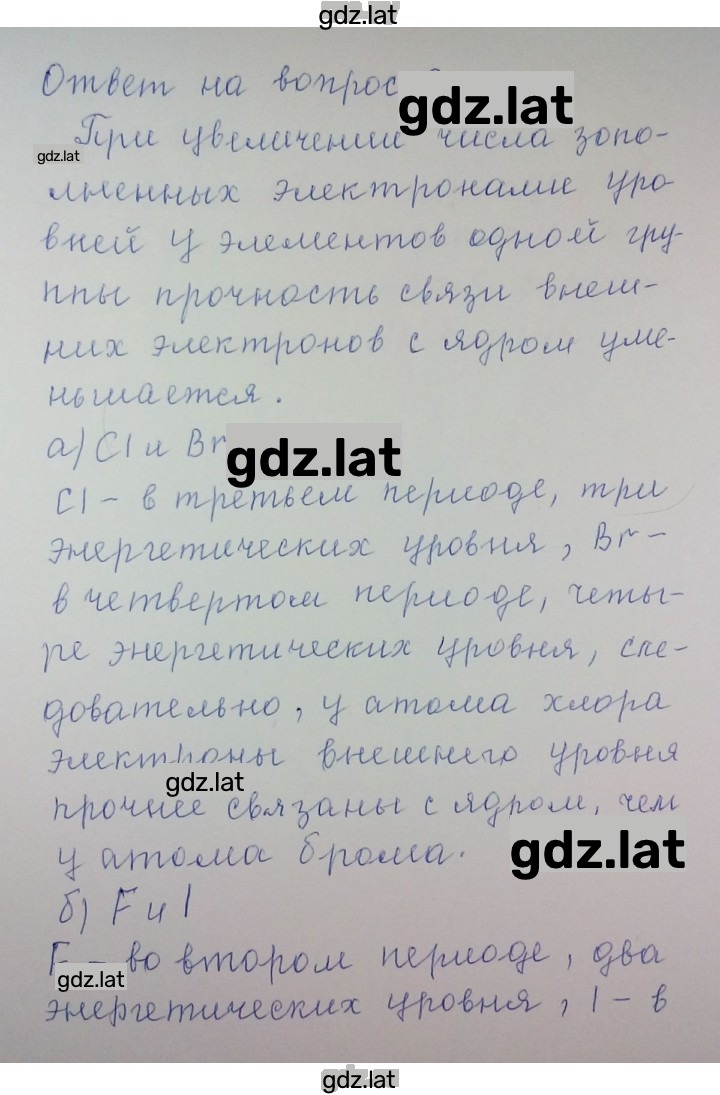 gdz.lat
Ответ на вопрос
gdz.lat
При увеличении числа запо-
gdz.lat
лненных электронами уро-
вней у элементов одной гру-
ппы прочность связи внеш-
них электронов с ядром уме-
ньшается.
а) Cl и Br
gdz.lat
Cl - в третьем периоде, три
энергетических уровня, Br -
в четвертом периоде, четы-
ре энергетических уровня, сле-
довательно, у атома хлора
электроны внешнего уровня
gdz.lat
прочнее связаны с ядром, чем
у атома брома.
gdz.lat
б) F и I
F - во втором периоде, два
gdz.lat
энергетических уровня, I - в
gdz.lat